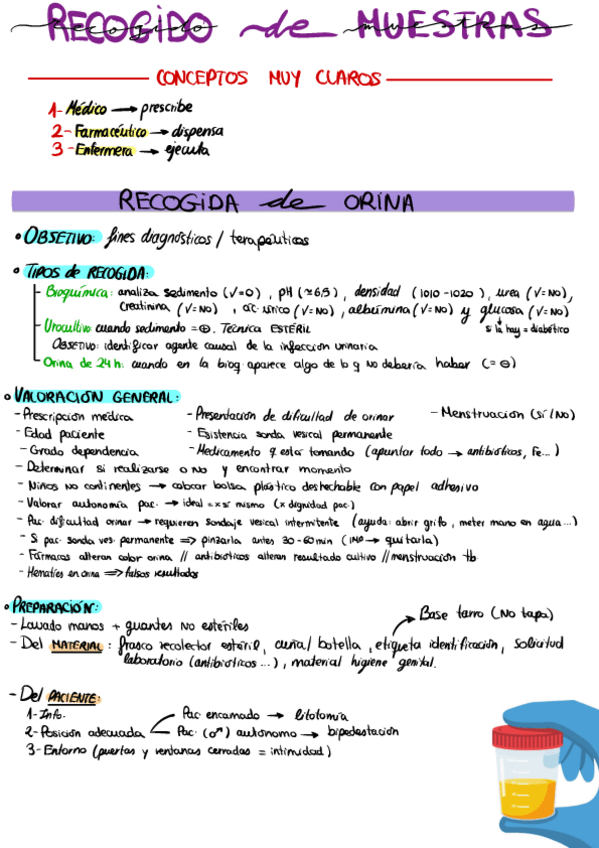 RECOGIDO de MUESTRAS
CONCEPTOS MUY CLAROS
1- Médico → prescribe
2- Farmacéutico → dispensa
3 - Enfermera → ejecuta
RECOGIDA de ORINA
• OBSETIVO: fines diagnósticos / terapéuticos
• TIPOS de RECOGIDA:
- Bioquímica: analiza sedimento (V=0), pH (≈6,5), densidad (1010-1020), urea (V=NO),
creatinina (V=NO), ác. úrico (V=NO), albúmina (V=NO) y glucosa (V=NO)
si la hay = diabético
- Urocultivo cuando sedimento = ⊕. Técnica ESTÉRIL
OBSETIVO: identificar agente causal de la infección urinaria
- Orina de 24h: cuando en la bioq aparece algo de lo q no debería haber (= ⊖)
• VALORACIÓN GENERAL:
- Prescripción médica - Presentación de dificultad de orinar - Menstruación (sí/NO)
- Edad paciente - Existencia sonda vesical permanente
- Grado dependencia - Medicamento q esta tomando (apuntar todo → antibióticos, Fe...)
- Determinar si realizarse o no y encontrar momento
- Niños no continentes → colocar bolsa plástico destechable con papel adhesivo
- Valorar autonomía pac. → ideal = x sí mismo (x dignidad pac.)
- Pac. dificultad orinar → requieren sondaje vesical intermitente (ayuda: abrir grifo, meter mano en agua...)
- Si pac. sonda ves. permanente ⇒ pinzarla antes 30-60min (IMP → quitarla)
- Fármacos alteran color orina // antibióticos alteran resultado cultivo // menstruación tb.
- Hematíes en orina ⇒ falsos resultados
• PREPARACIÓN:
- Lavado manos + guantes NO estériles
Base tarro (NO tapa)
- Del MATERIAL: frasco recolector estéril, cuña/botella, etiqueta identificación, solicitud
laboratorio (antibióticos ...), material higiene genital.
- Del PACIENTE:
1- Info.
Pac encamado → litotomía
2- Posición adecuada Pac. (♂) autónomo → bipedestación
3- Entorno (puertas y ventanas cerradas = intimidad)